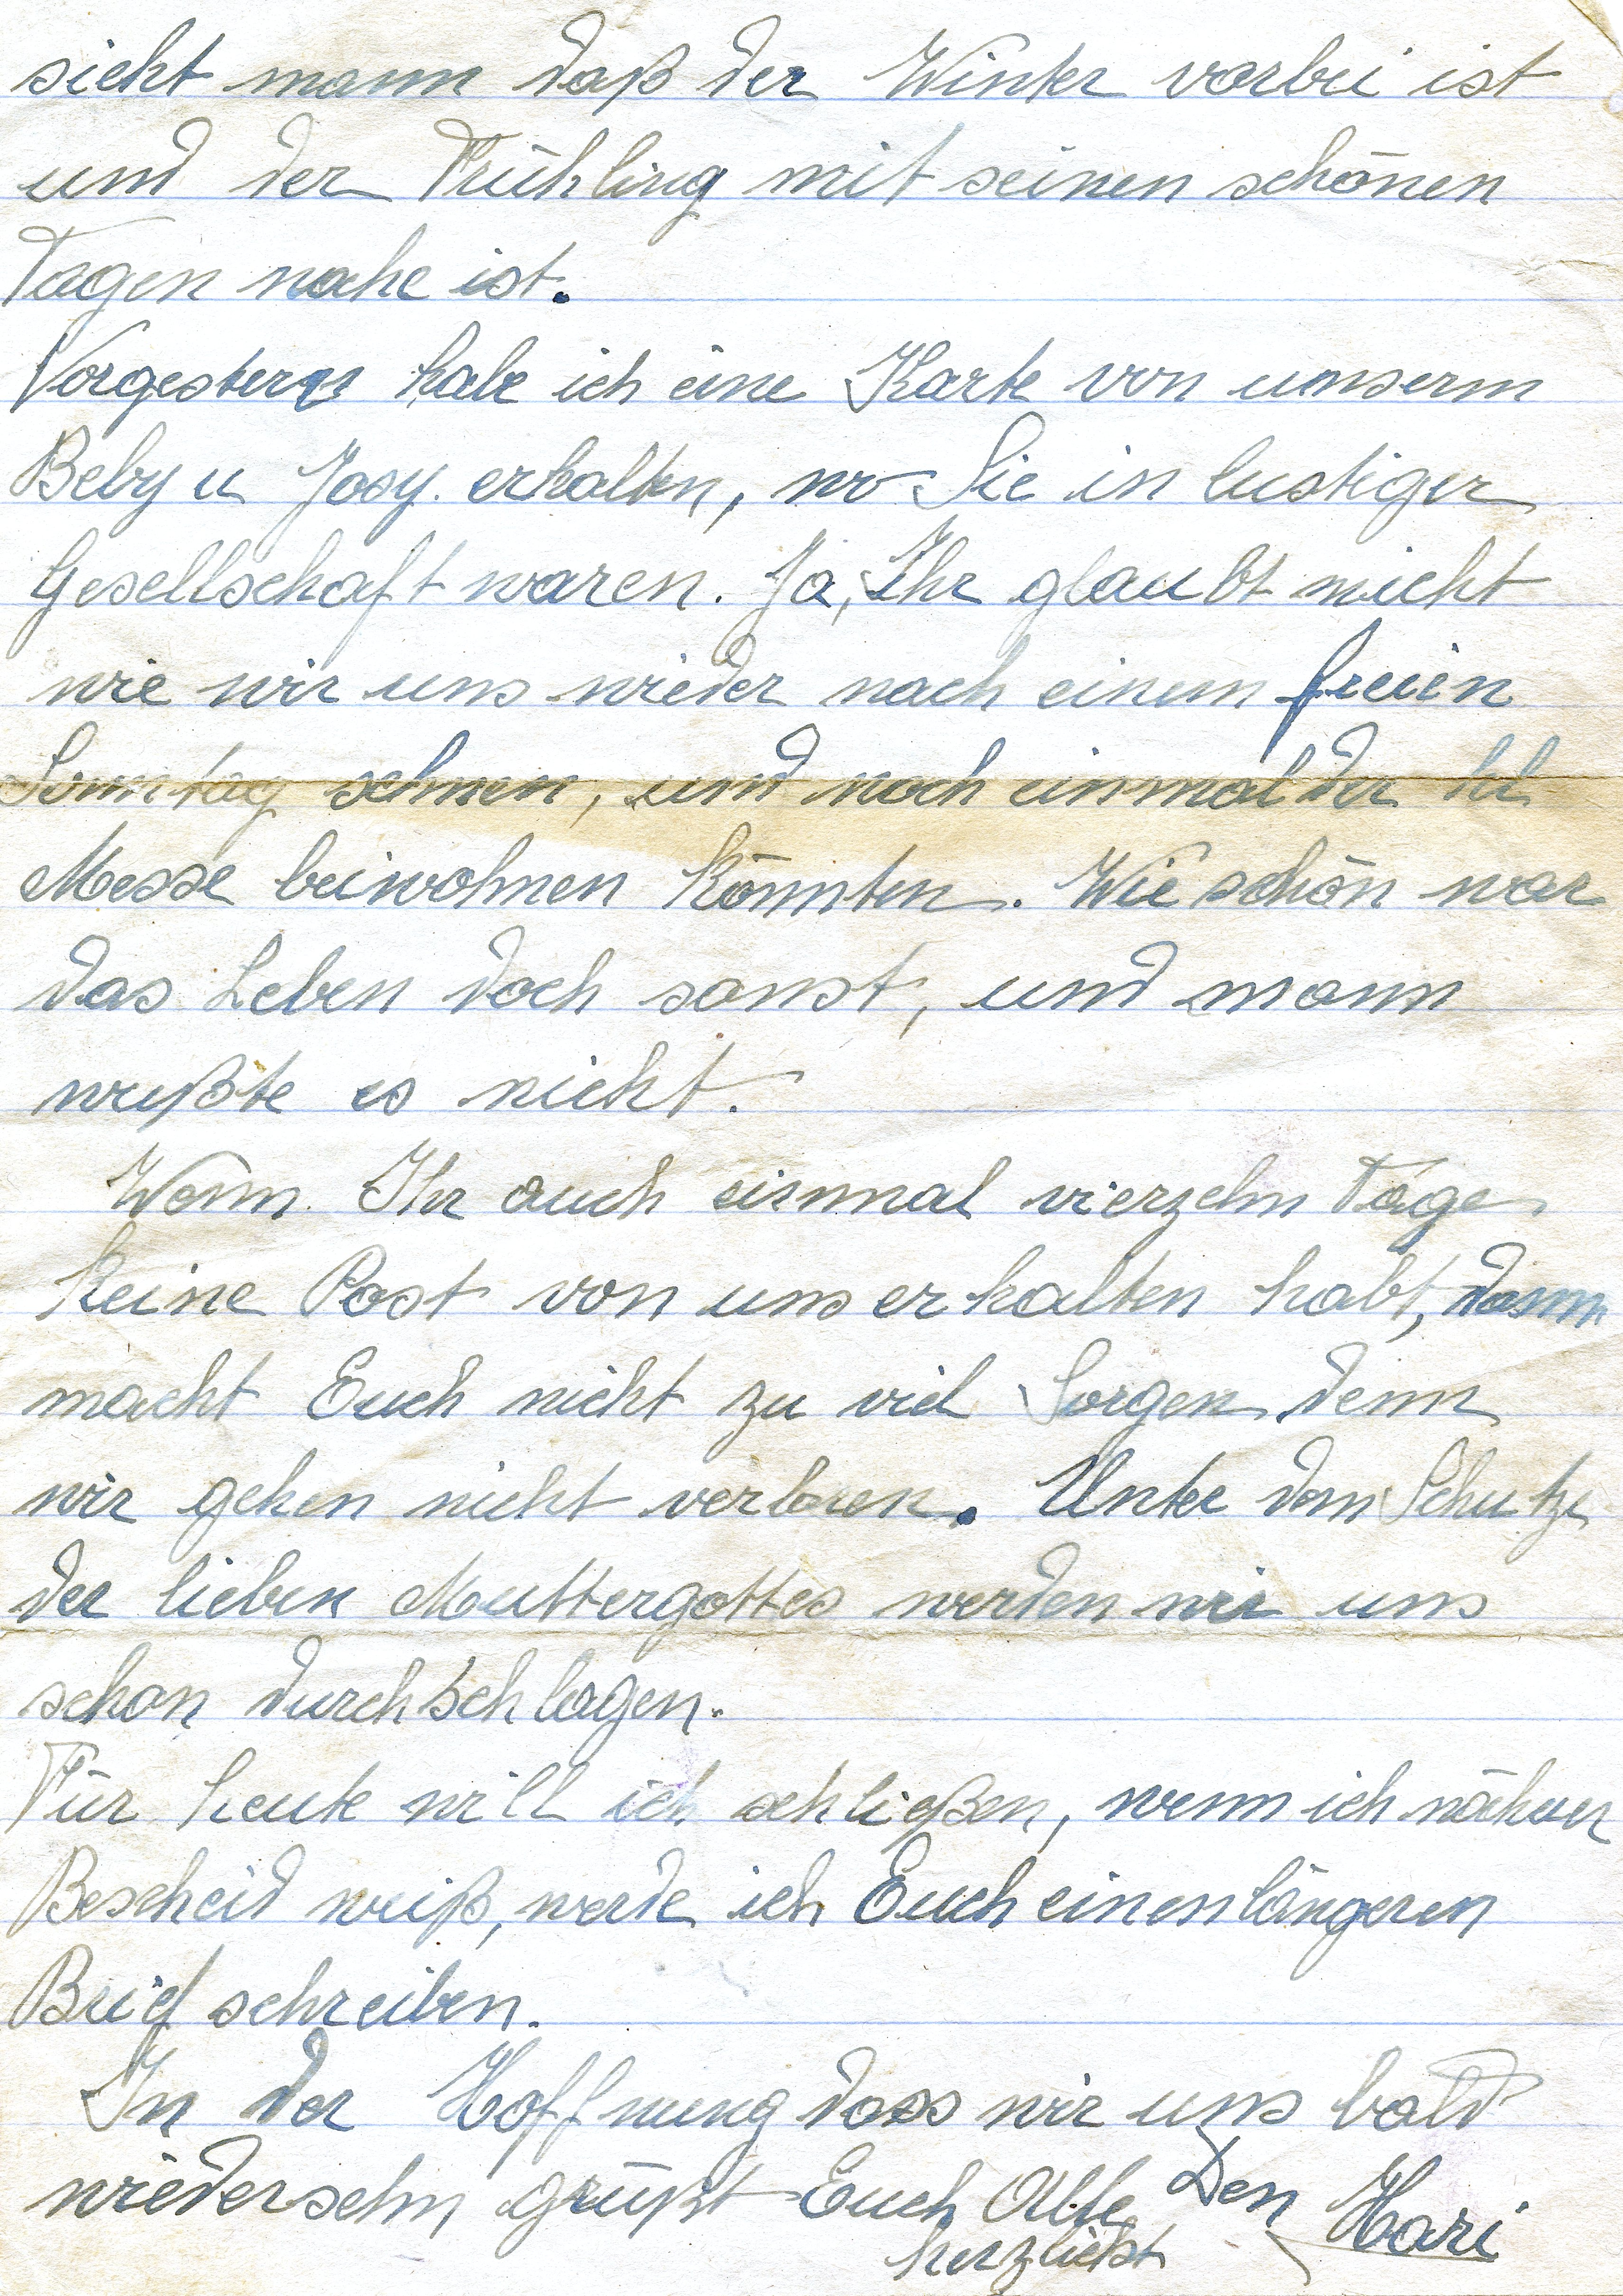 sieht mann daß der Winter vorbei ist
und der Frühling mit seinen schönen
Tagen nahe ist.
Vorgestern habe ich eine Karte von unserm
Beby u Josy. erhalten, wo Sie in lustiger
Gesellschaft waren. Ja, Ihr glaubt nicht
wie wir uns wieder nach einem freien
Sonntag sehnen, und noch einmal der hl
Messe beiwohnen könnten. Wie schön war
das Leben doch sonst, und mann
wußte es nicht.
Wenn Ihr auch einmal vierzehn Tage
keine Post von uns erhalten habt, dann
macht Euch nicht zu viel Sorgen denn
wir gehen nicht verloren. Unter dem Schutze
der lieben Muttergottes werden wir uns
schon durchschlagen.
Für heute will ich schließen, wenn ich näheren
Bescheid weiß, werde ich Euch einen längeren
Brief schreiben.
In der Hoffnung dass wir uns bald
wiedersehn grüßt Euch Alle Den Hari
herzlichst